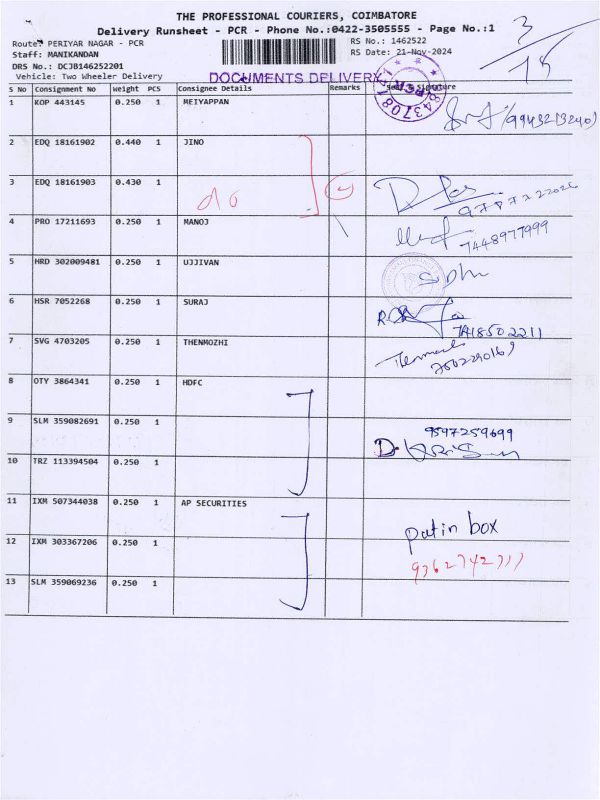 THE PROFESSIONAL COURIERS, COIMBATORE
Delivery Runsheet - PCR - Phone No.:0422-3505555 - Page No.:1
Route: PERIYAR NAGAR - PCR
RS No.: 1462522
Staff: MANIKANDAN
RS Date: 21-Nov-2024
DRS No.: DCJB146252201
Vehicle: Two Wheeler Delivery
DOCUMENTS DELIVERY
3/15
S No Consignment No Weight PCS Consignee Details Remarks Seal & Signature
1 KOP 443145 0.250 1 MEIYAPPAN
2 EDQ 18161902 0.440 1 JINO
3 EDQ 18161903 0.430 1
4 PRO 17211693 0.250 1 MANOJ
7448977999
5 HRD 302009481 0.250 1 UJJIVAN
6 HSR 7052268 0.250 1 SURAJ
7 SVG 4703205 0.250 1 THENMOZHI
8 OTY 3864341 0.250 1 HDFC
9 SLM 359082691 0.250 1
9597259699
10 TRZ 113394504 0.250 1
11 IXM 507344038 0.250 1 AP SECURITIES
put in box
12 IXM 303367206 0.250 1
13 SLM 359069236 0.250 1